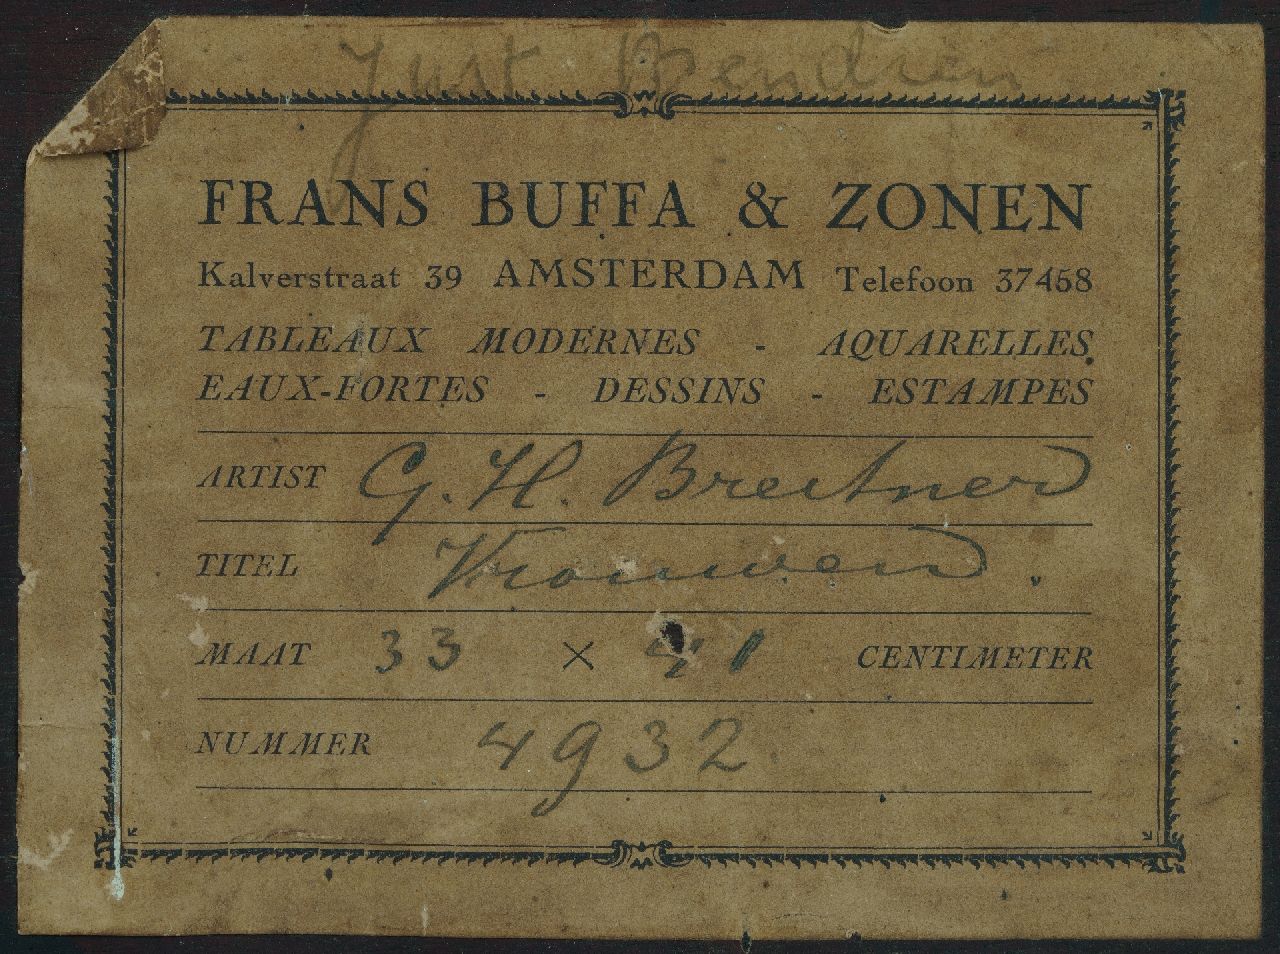 Just Bendien
FRANS BUFFA & ZONEN
Kalverstraat 39 AMSTERDAM Telefoon 37458
TABLEAUX MODERNES - AQUARELLES
EAUX-FORTES - DESSINS - ESTAMPES
ARTIST G. H. Breitner
TITEL Vrouwen.
MAAT 33 × 41 CENTIMETER
NUMMER 4932